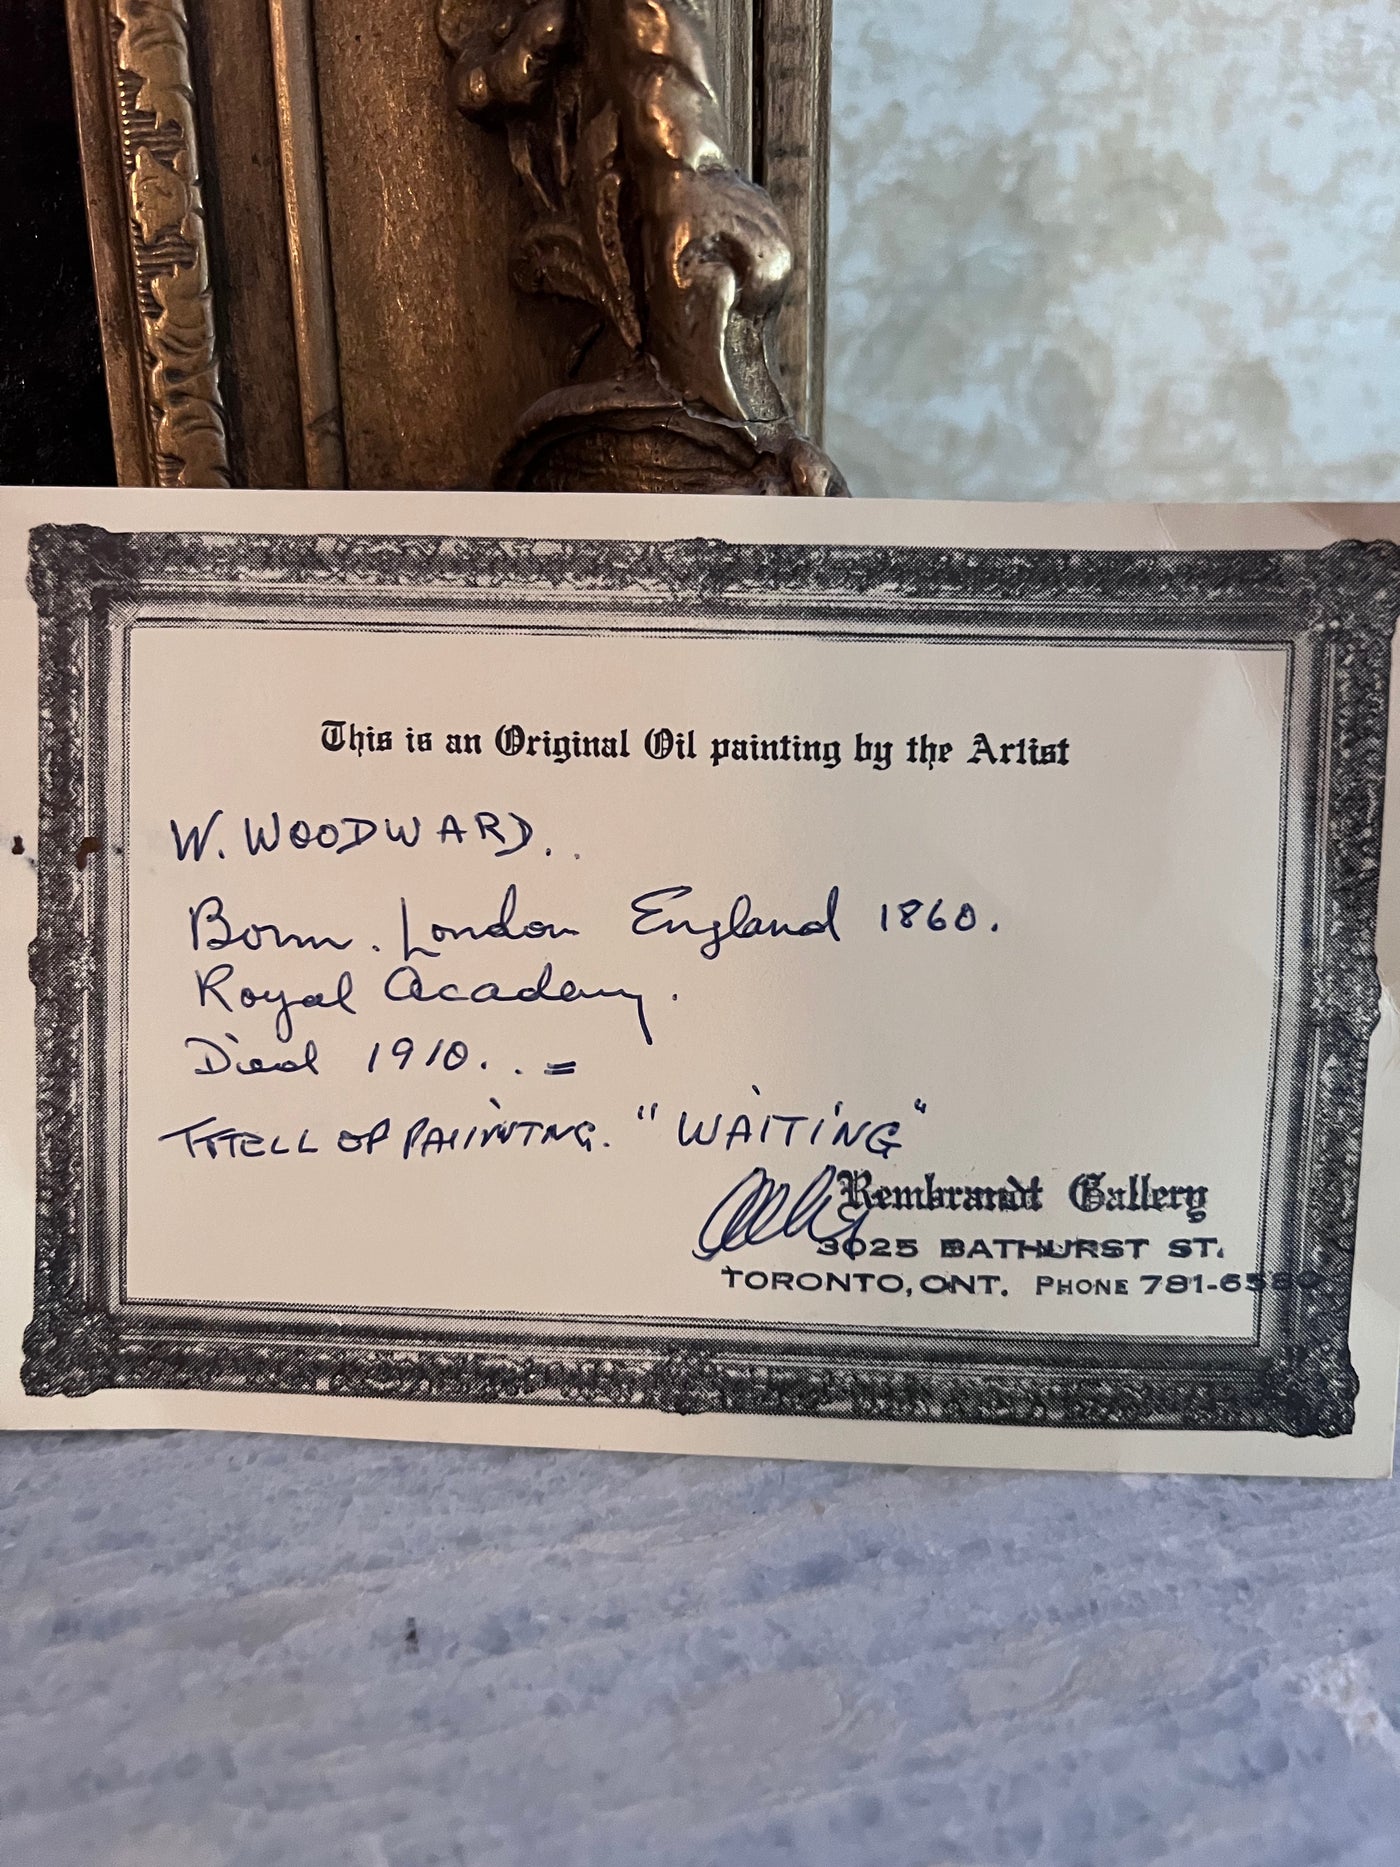 This is an Original Oil painting by the Artist
W. WOODWARD..
Born. London England 1860.
Royal Academy.
Died 1910. . =
TITELL OF PAIINTNG. "WAITING"
Rembrandt Gallery
3025 BATHURST ST.
TORONTO, ONT. PHONE 781-6580